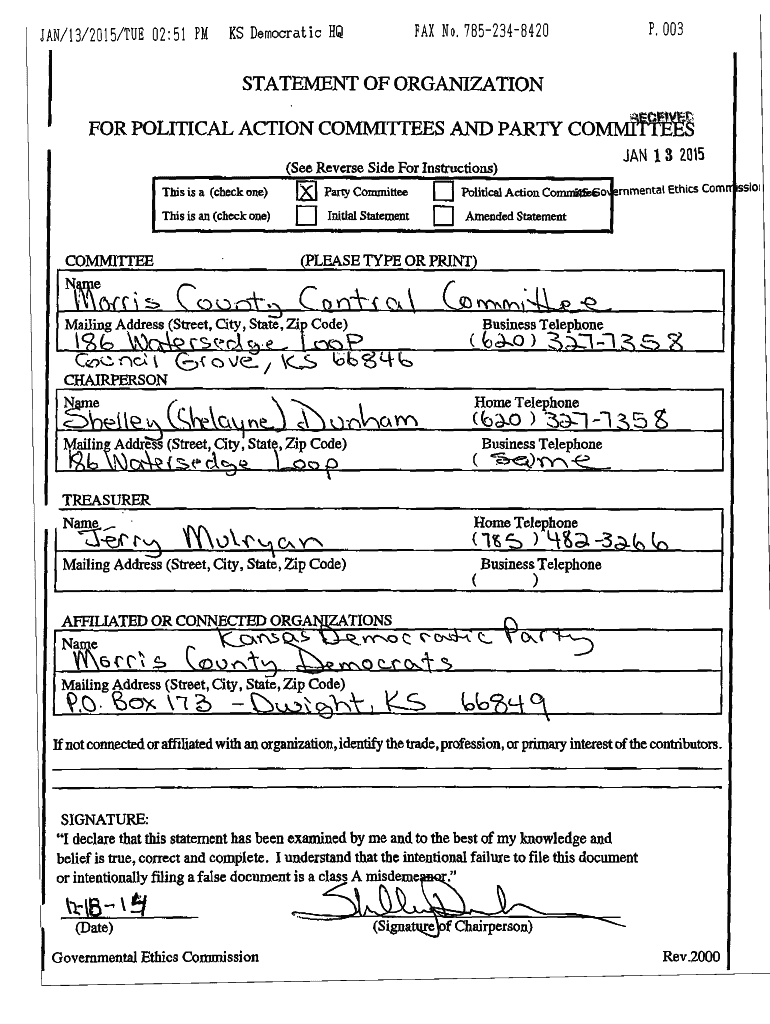 JAN/13/2015/TUE 02:51 PM KS Democratic HQ FAX No. 785-234-8420 P. 003
STATEMENT OF ORGANIZATION
FOR POLITICAL ACTION COMMITTEES AND PARTY COMMITTEES
RECEIVED
JAN 13 2015
(See Reverse Side For Instructions)
This is a (check one) X Party Committee Political Action Committee
Governmental Ethics Commission
This is an (check one) Initial Statement Amended Statement
COMMITTEE (PLEASE TYPE OR PRINT)
Name
Morris County Central Committee
Mailing Address (Street, City, State, Zip Code) Business Telephone
186 Watersedge Loop (620) 327-7358
Council Grove, KS 66846
CHAIRPERSON
Name Home Telephone
Shelley (Shelayne) Dunham (620) 327-7358
Mailing Address (Street, City, State, Zip Code) Business Telephone
186 Watersedge Loop (same)
TREASURER
Name Home Telephone
Jerry Mulryan (785) 482-3266
Mailing Address (Street, City, State, Zip Code) Business Telephone
( )
AFFILIATED OR CONNECTED ORGANIZATIONS
Kansas Democratic Party
Name
Morris County Democrats
Mailing Address (Street, City, State, Zip Code)
P.O. Box 173 - Dwight, KS 66849
If not connected or affiliated with an organization, identify the trade, profession, or primary interest of the contributors.
SIGNATURE:
"I declare that this statement has been examined by me and to the best of my knowledge and
belief is true, correct and complete. I understand that the intentional failure to file this document
or intentionally filing a false document is a class A misdemeanor."
(Date) (Signature of Chairperson)
Governmental Ethics Commission Rev.2000